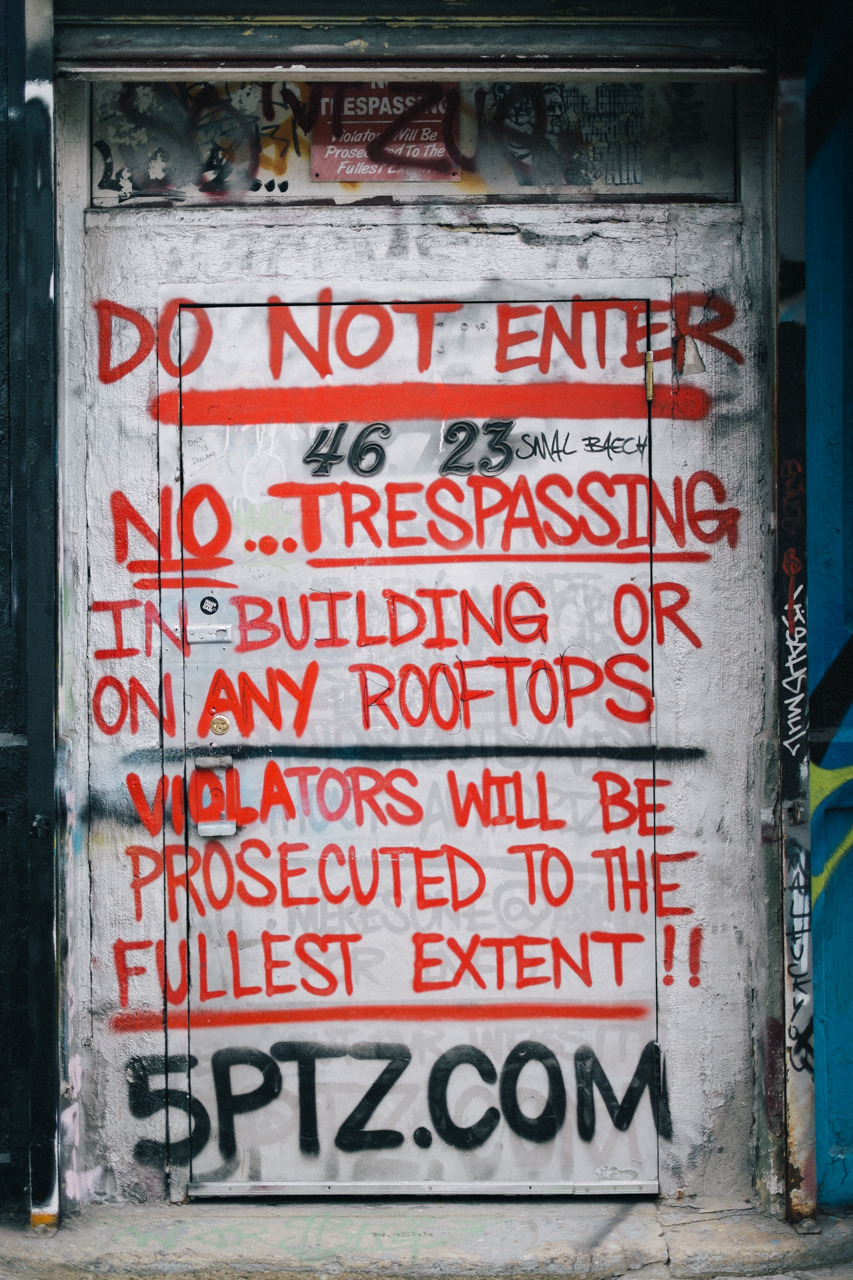 TRESPASSING
Violators Will Be
Prosecuted To The
Fullest Extent
DO NOT ENTER
46 23 SMAL BAECH
NO...TRESPASSING
IN BUILDING OR
ON ANY ROOFTOPS
VIOLATORS WILL BE
PROSECUTED TO THE
FULLEST EXTENT!!
5PTZ.COM